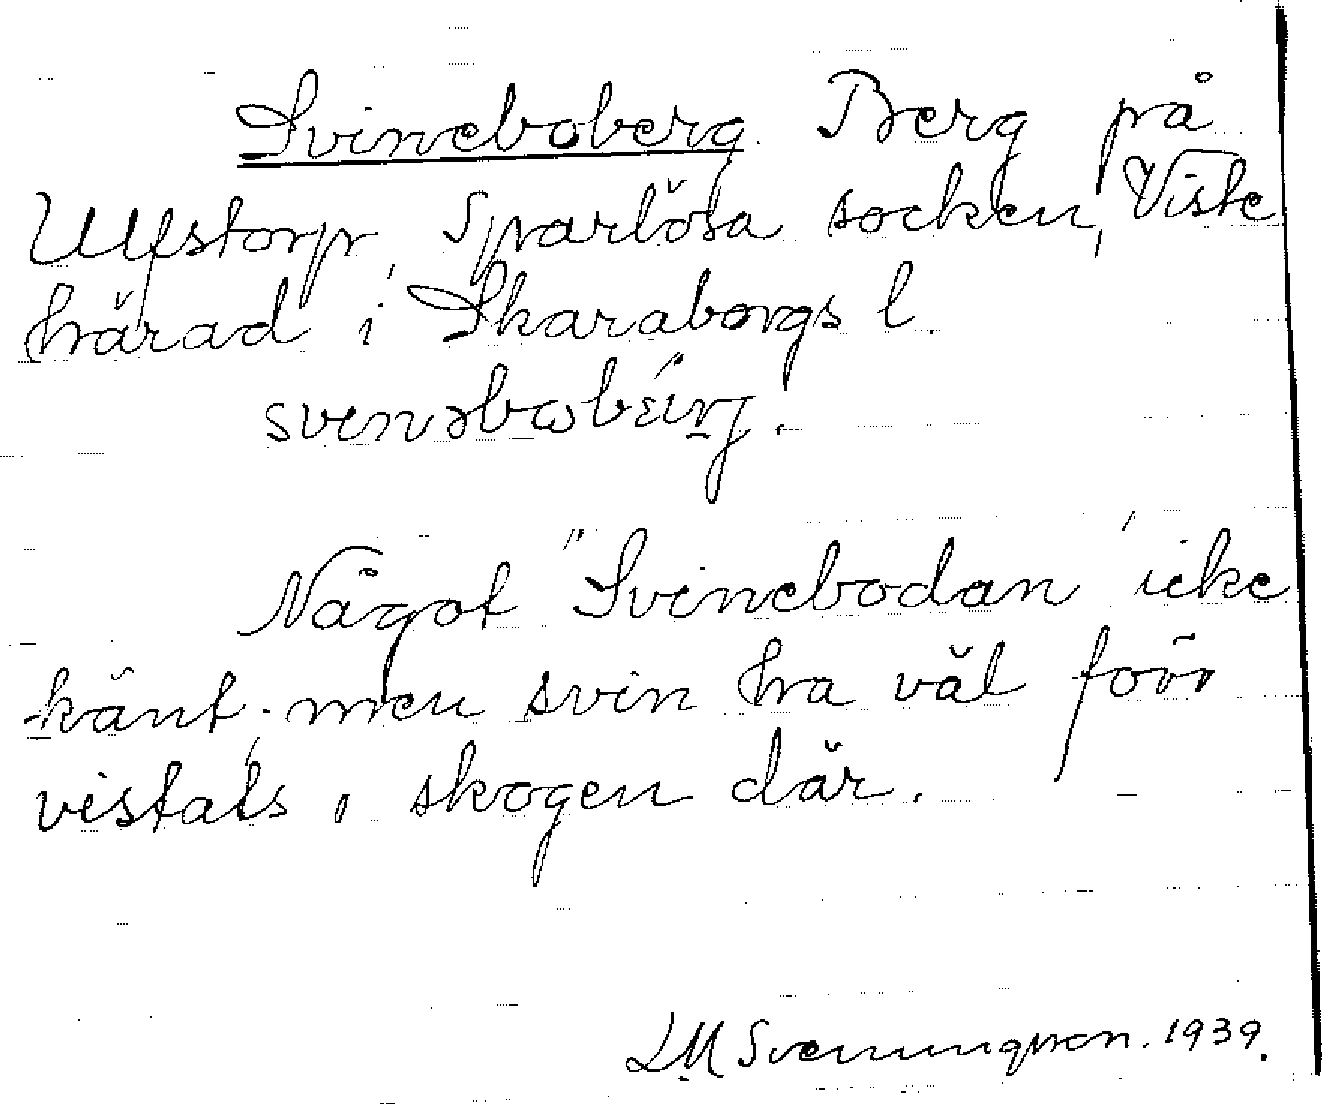 Svineboberg. Berg på
Ulfstorp, Sparlösa socken, Viste
härad i Skaraborgs l.
svenəbωbǽrj.
Något "Svinebodan" icke
känt; men svin ha väl förr
vistats i skogen där.
LM Svenungsson. 1939.